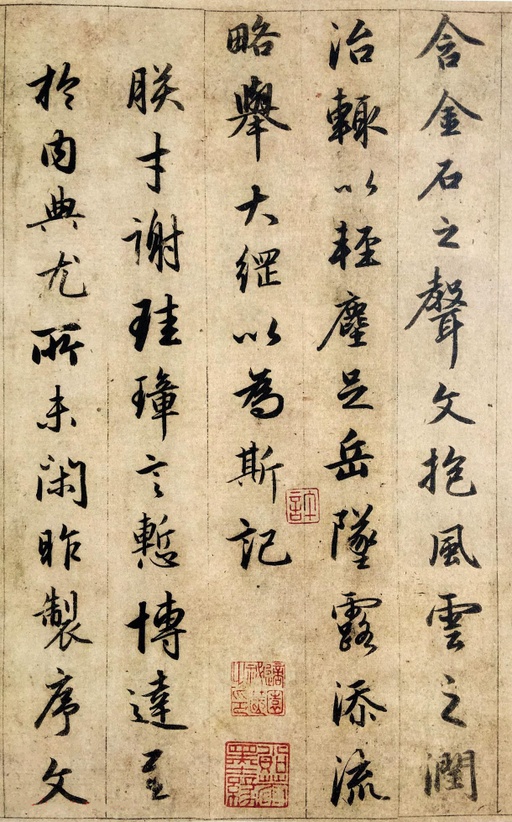 含金石之聲文抱風雲之潤
治輙以輕塵足岳墜露添流
略舉大綱以為斯記
朕才謝珪璋言慙博達至
於内典尤所未閑昨製序文
許